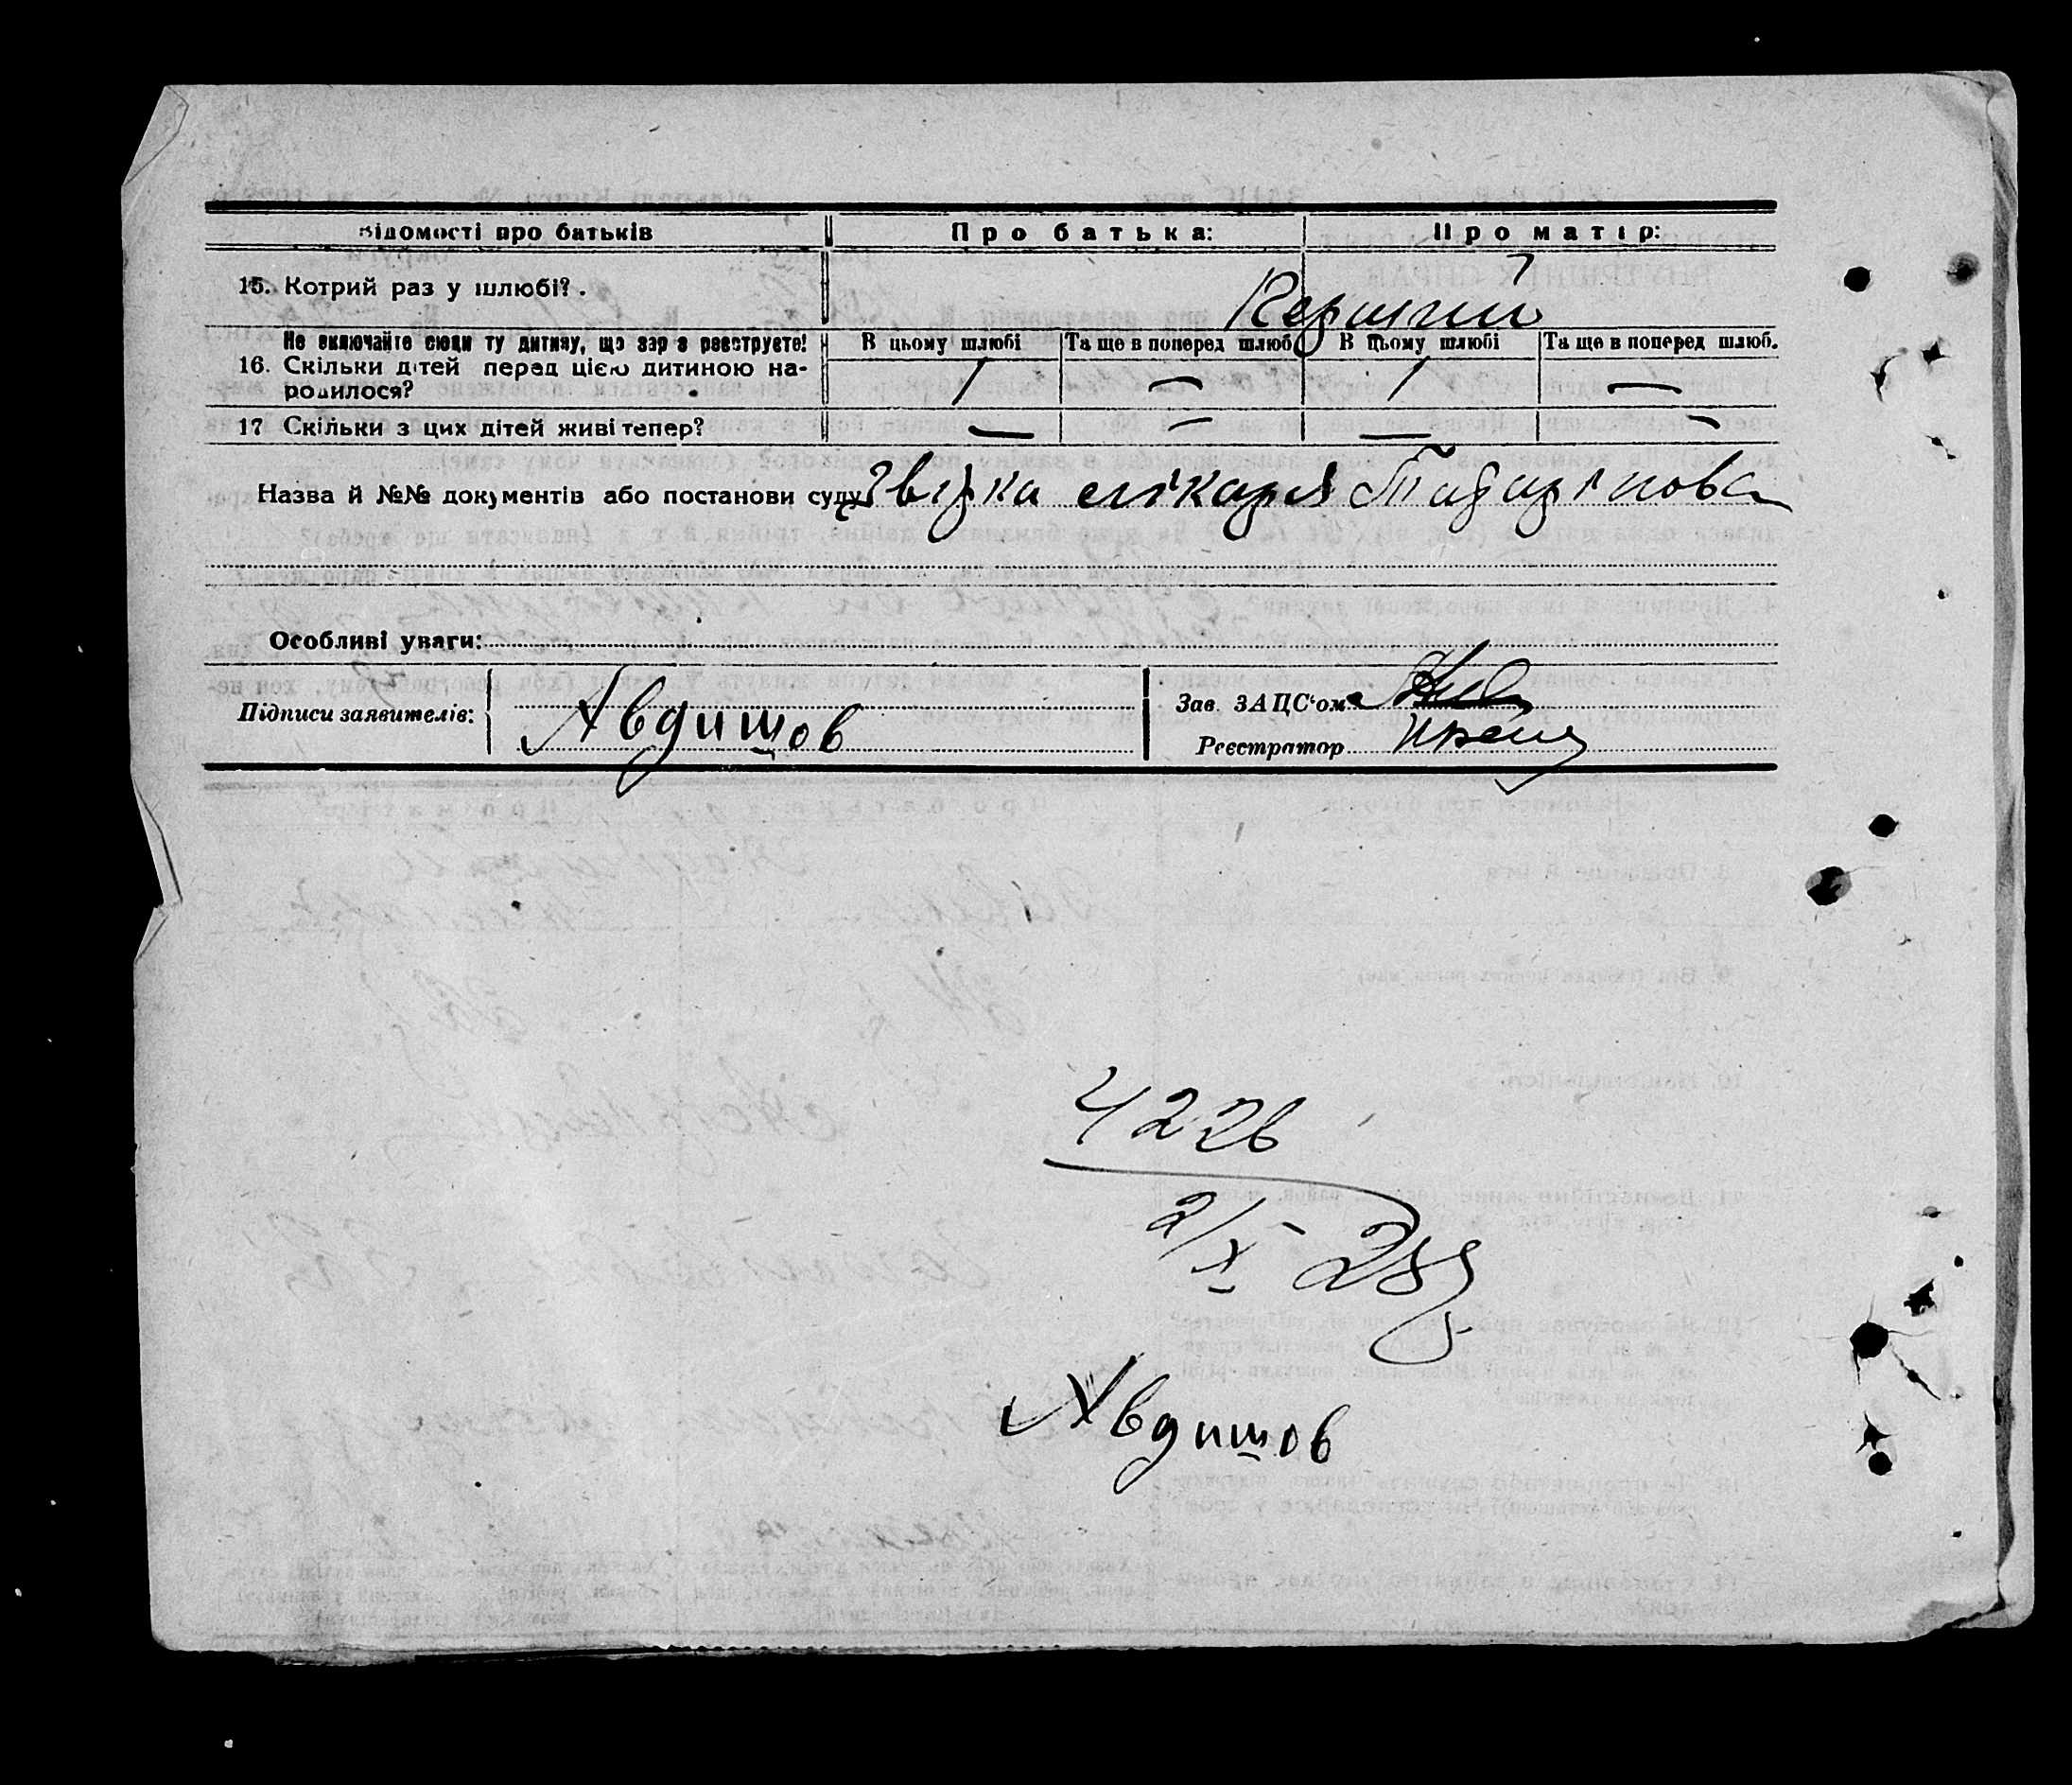 Відомості про батьків Про батька: Про матір:
15. Котрий раз у шлюбі?
Не включайте сюди ту дитину, що зараз реєструєте! В цьому шлюбі Та ще в поперед шлюб. В цьому шлюбі Та ще в поперед шлюб.
16. Скільки дітей перед цією дитиною на- 1 — 1 —
родилося?
17 Скільки з цих дітей живі тепер? — — — —
Назва й №№ документів або постанови суду лікаря
Особливі уваги:
Підписи заявителів: Авдишов Зав. ЗАЦС'ом
Реєстратор
4226
2/X 28
Авдишов